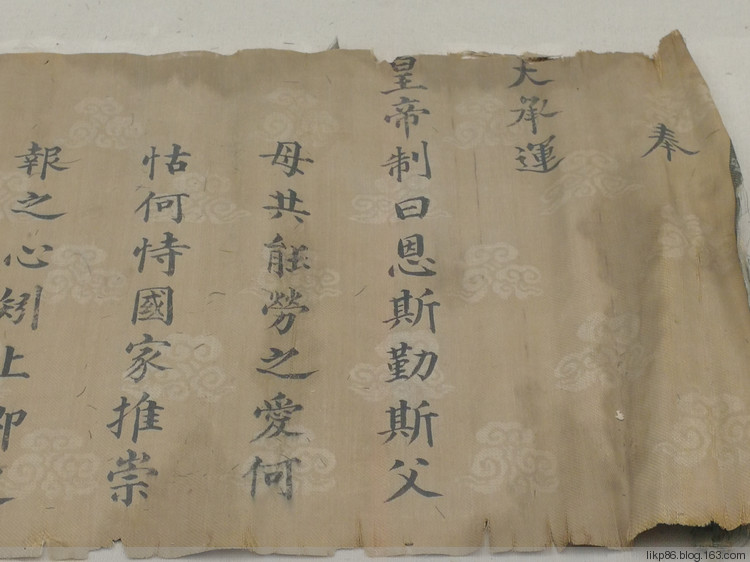 奉
天承運
皇帝制曰恩斯勤斯父
母共能勞之愛何
怙何恃國家推崇
報之心矧上
likp86.blog.163.com